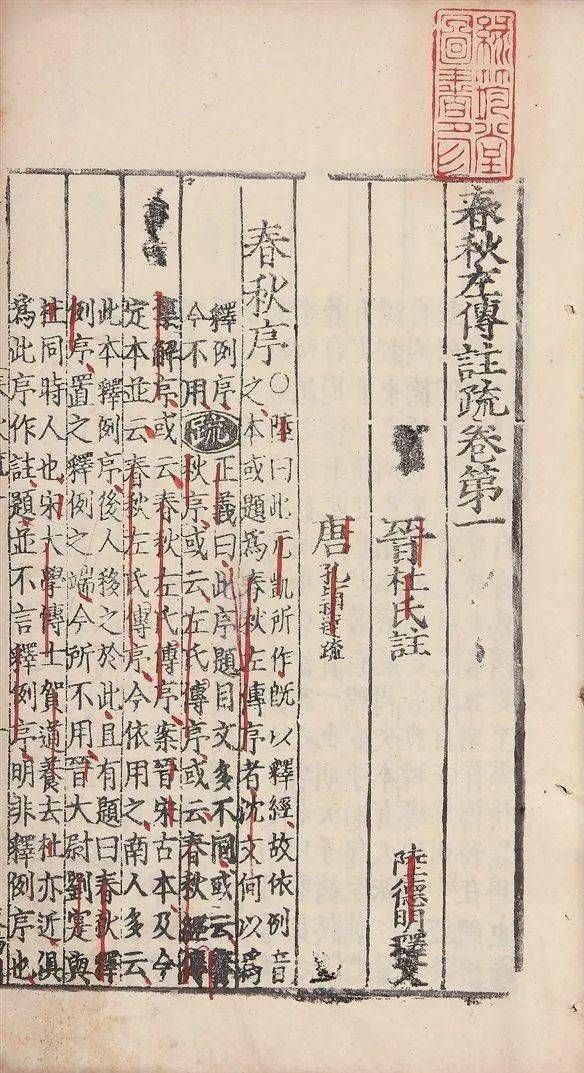 堂
圖書印
春秋左傳註疏卷第一
晉杜氏註 陸德明釋文
唐孔穎達疏
春秋序○陸曰此元凱所作旣以釋經故依例音
之本或題爲春秋左傳序者沈文何以爲
釋例序
今不用
疏
正義曰此序題目文多不同或云春
秋序或云左氏傳序或云春秋經傳
集解序或云春秋左氏傳序案晉宋古本及今
定本並云春秋左氏傳序今依用之南人多云
此本釋例序後人移之於此且有題曰春秋釋
例序置之釋例之端今所不用晉大尉劉寔與
杜同時人也宋大學博士賀道養去杜亦近俱
爲此序作註題並不言釋例序明非釋例序也